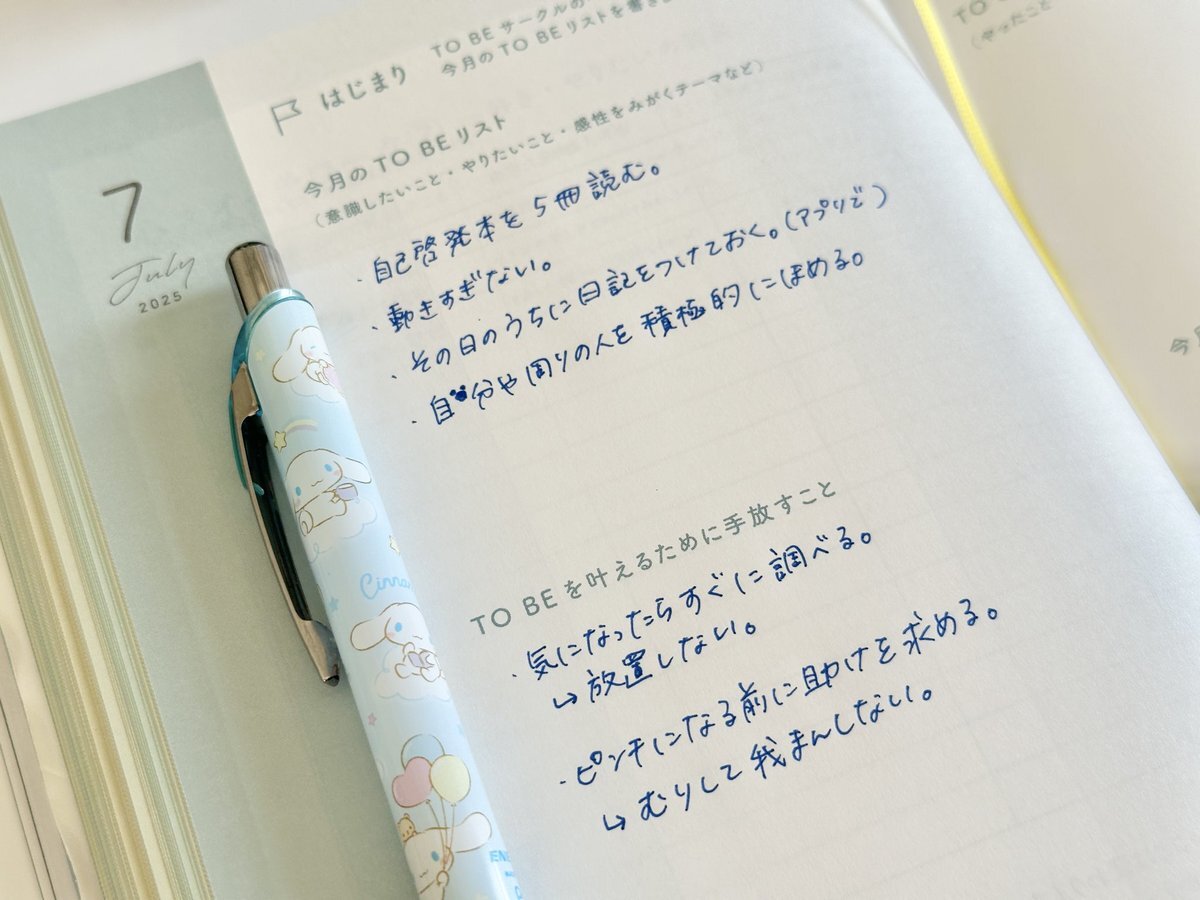 7
July
2025
TO BE サークルの
はじまり
今月のTO BEリストを書き
今月のTO BEリスト
（意識したいこと・やりたいこと・感性をみがくテーマなど）
・自己啓発本を5冊読む。
・動きすぎない。
・その日のうちに日記をつけておく。（アプリで）
・自分や周りの人を積極的にほめる。
TO BEを叶えるために手放すこと
・気になったらすぐに調べる。
↳ 放置しない。
・ピンチになる前に助けを求める。
↳ むりして我まんしない。
Cinna
ENE
TO
（やったこと
今